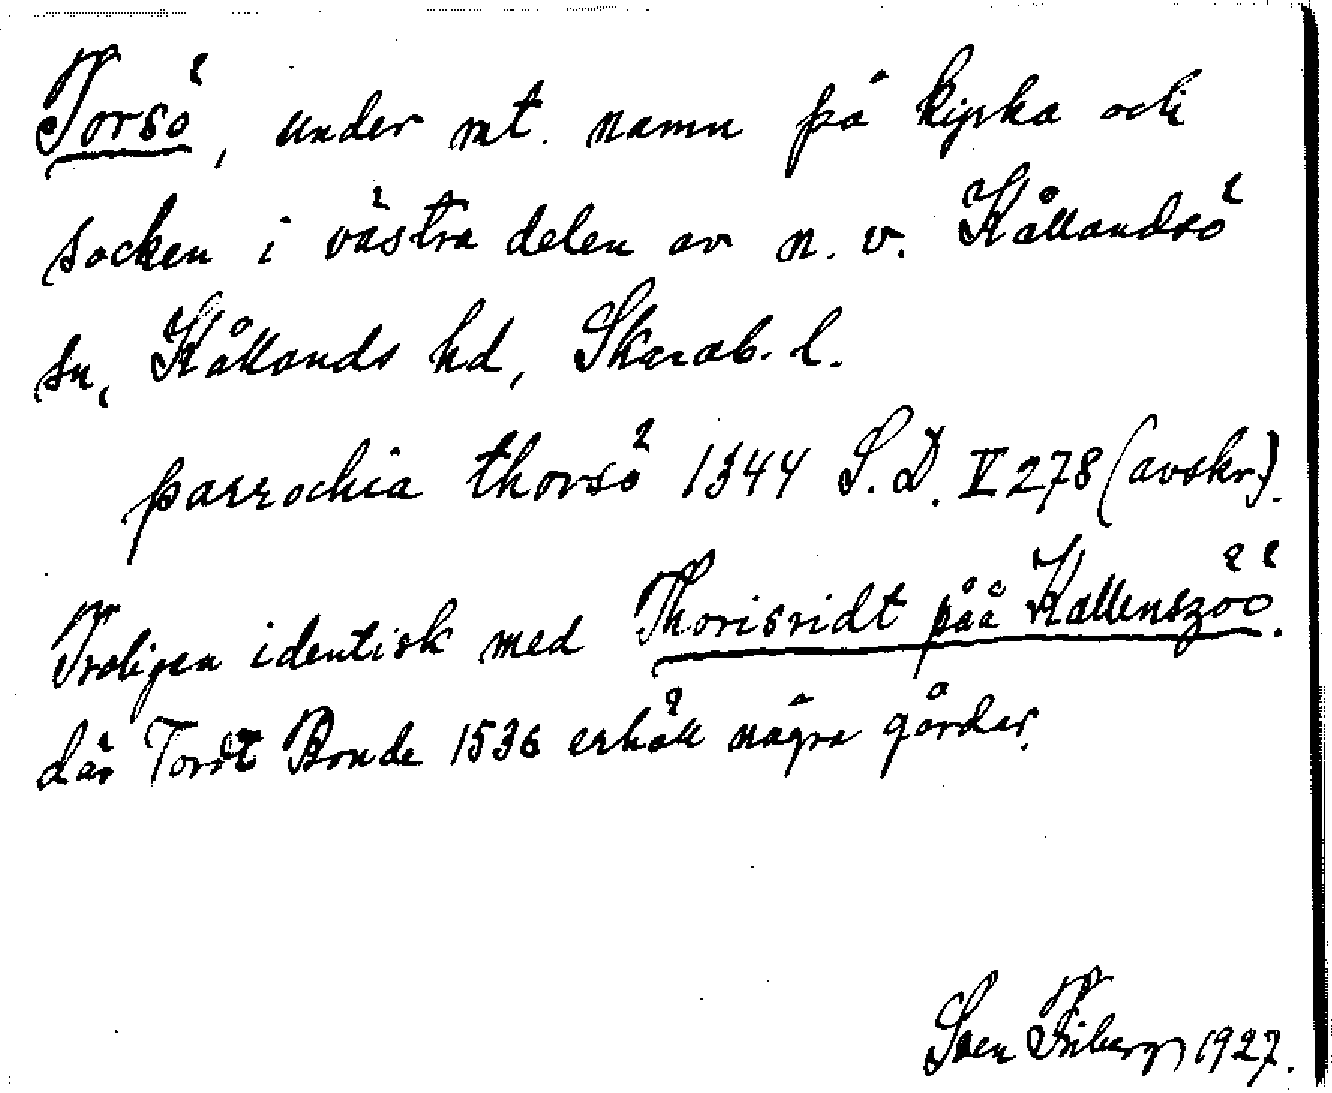 Torsö, under mt. namn på kyrka och
socken i västra delen av n. v. Kållandsö
sn, Kållands hd, Skarab. l.
parrochia thorsö 1344 S. D. V 278 (avskr.).
Troligen identisk med Thorisridt påå Kallenszöö.
där Tordt Bonde 1536 erhöll några gårdar.
Sven Friberg 1927.